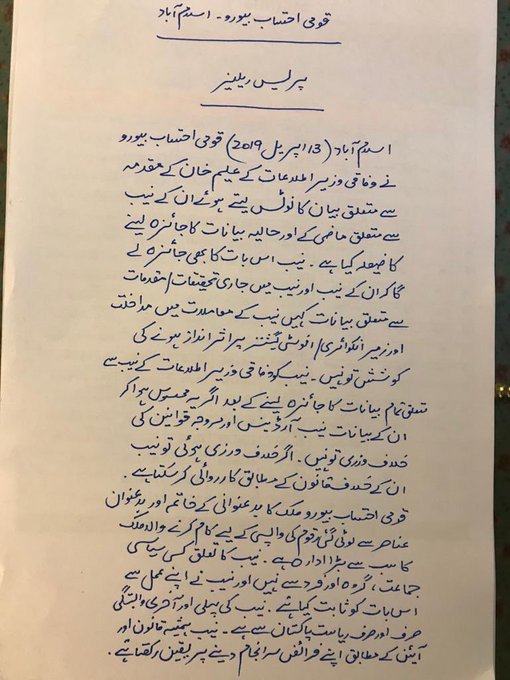 قومی احتساب بیورو - اسلام آباد
پریس ریلیز
اسلام آباد (13 اپریل 2019) قومی احتساب بیورو
نے وفاقی وزیر اطلاعات کے علیم خان کے مقدمہ
سے متعلق بیان کا نوٹس لیتے ہوئے ان کے نیب
سے متعلق ماضی کے اور حالیہ بیانات کا جائزہ لینے
کا فیصلہ کیا ہے۔ نیب اس بات کا بھی جائزہ لے
گا کہ ان کے نیب اور نیب میں جاری تحقیقات/مقدمات
سے متعلق بیانات کہیں نیب کے معاملات میں مداخلت
اور زیر انکوائری/انوسٹی گیشنز پر اثر انداز ہونے کی
کوشش تو نہیں۔ نیب کو وفاقی وزیر اطلاعات کے نیب سے
متعلق تمام بیانات کا جائزہ لینے کے بعد اگر یہ محسوس ہوا کہ
ان کے بیانات نیب آرڈیننس اور مروجہ قوانین کی
خلاف ورزی تو نہیں۔ اگر خلاف ورزی ہوئی تو نیب
ان کے خلاف قانون کے مطابق کارروائی کر سکتا ہے۔
قومی احتساب بیورو ملک کا بدعنوانی کے خاتمہ اور بدعنوان
عناصر سے لوٹی گئی رقوم کی واپسی کے لیے کام کرنے والا ملک
کا سب سے بڑا ادارہ ہے۔ نیب کا تعلق کسی سیاسی
جماعت، گروہ اور فرد سے نہیں اور نیب نے اپنے عمل سے
اس بات کو ثابت کیا ہے۔ نیب کی پہلی اور آخری وابستگی
صرف اور صرف ریاست پاکستان سے ہے۔ نیب ہمیشہ قانون اور
آئین کے مطابق اپنے فرائض سرانجام دینے پر یقین رکھتا ہے۔